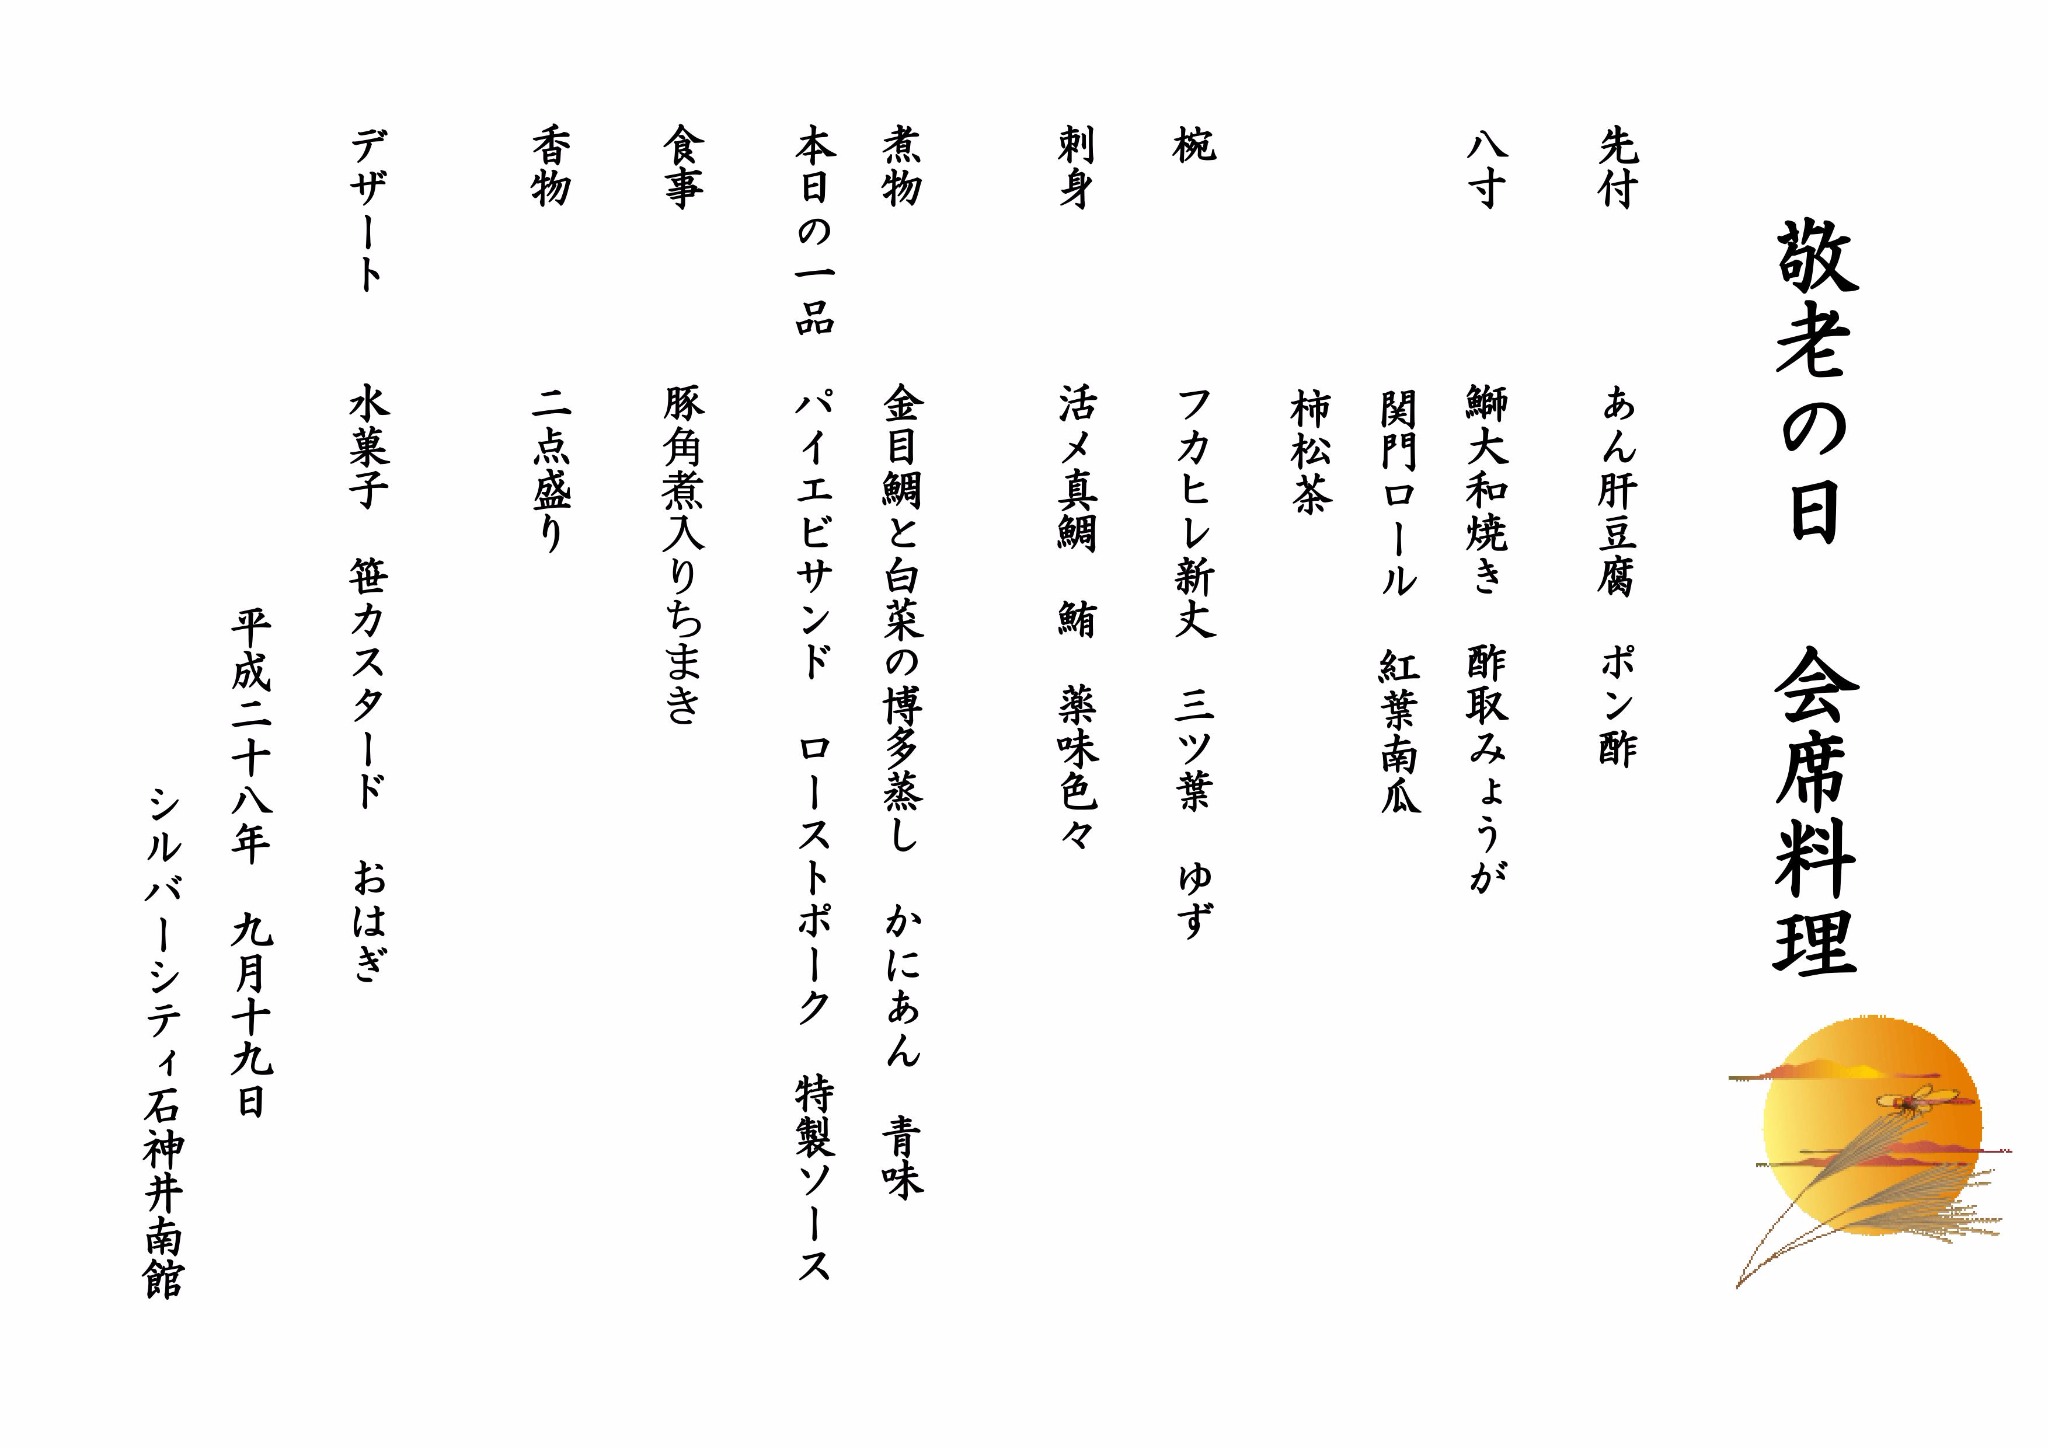 敬老の日　会席料理
先付　あん肝豆腐　ポン酢
八寸　鰤大和焼き　酢取みょうが
関門ロール　紅葉南瓜
柿松茶
椀　フカヒレ新丈　三ツ葉　ゆず
刺身　活〆真鯛　鮪　薬味色々
煮物　金目鯛と白菜の博多蒸し　かにあん　青味
本日の一品　パイエビサンド　ローストポーク　特製ソース
食事　豚角煮入りちまき
香物　二点盛り
デザート　水菓子　笹カスタード　おはぎ
平成二十八年　九月十九日
シルバーシティ石神井南館